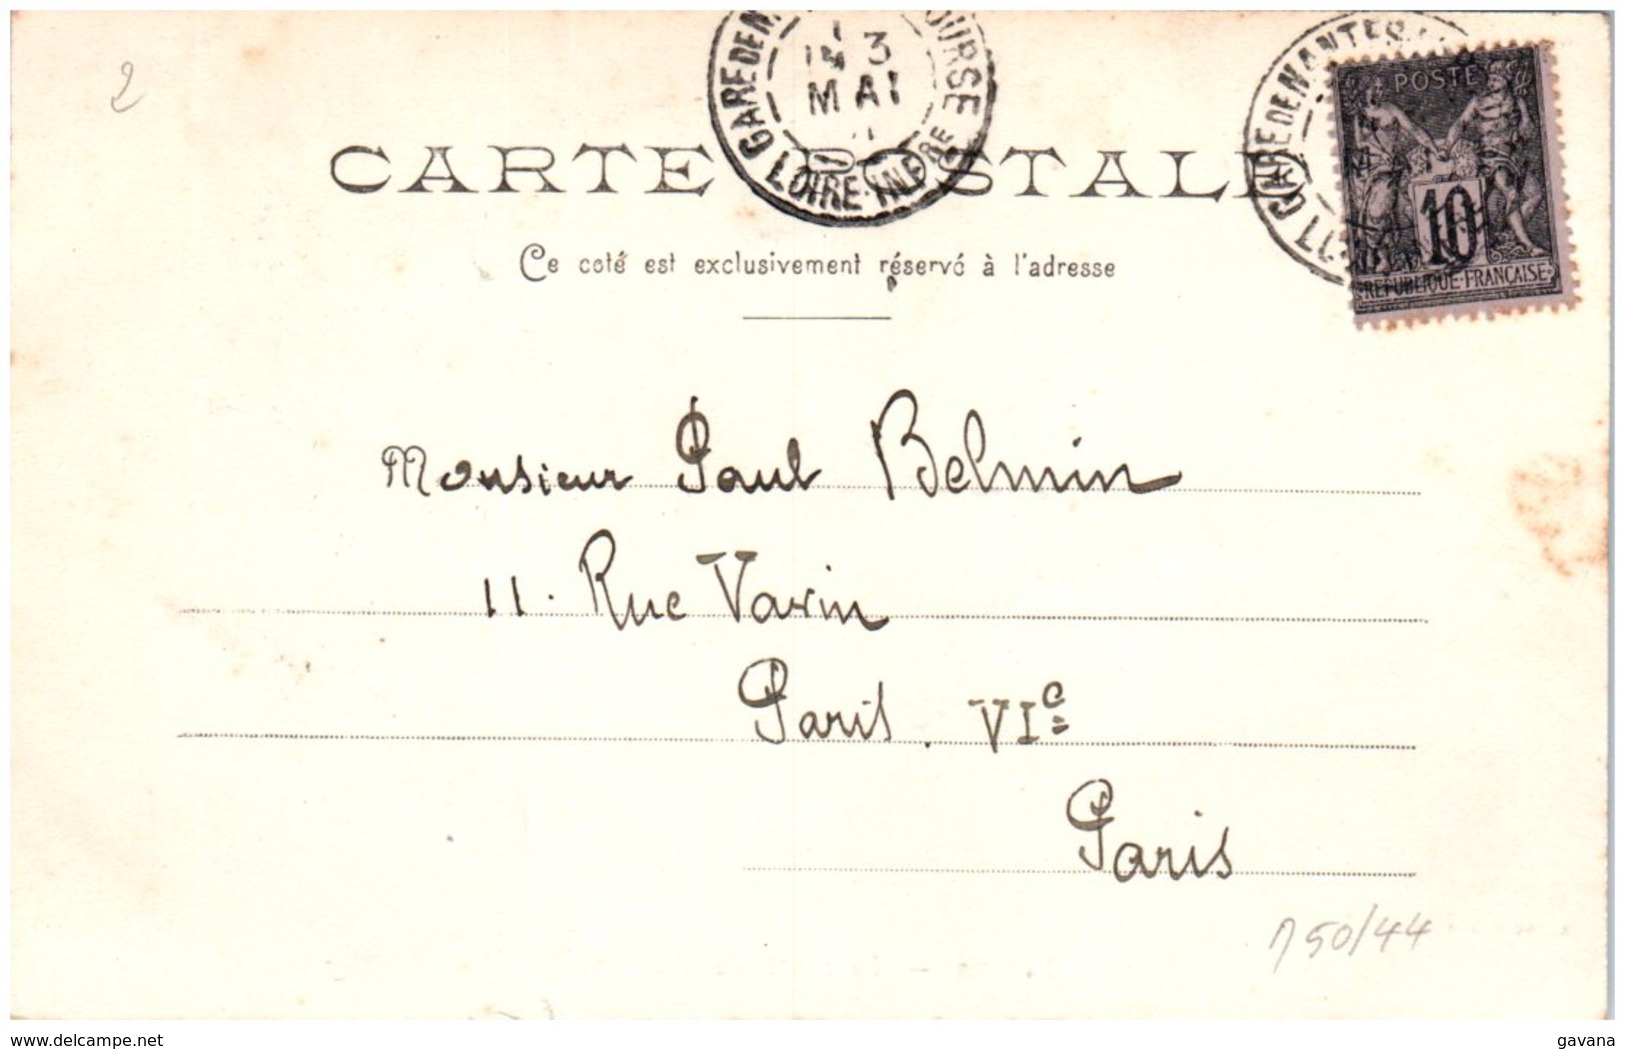 2
GARE DE N OURSE
3
MAI
LOIRE-INFRE
GARE DE NANTES
POSTE
10
REPUBLIQUE·FRANÇAISE
CARTE POSTALE
Ce coté est exclusivement réservé à l'adresse
Monsieur Paul Belmin
11. Rue Varin
Paris. VIe
Paris
50/44
www.delcampe.net
gavana